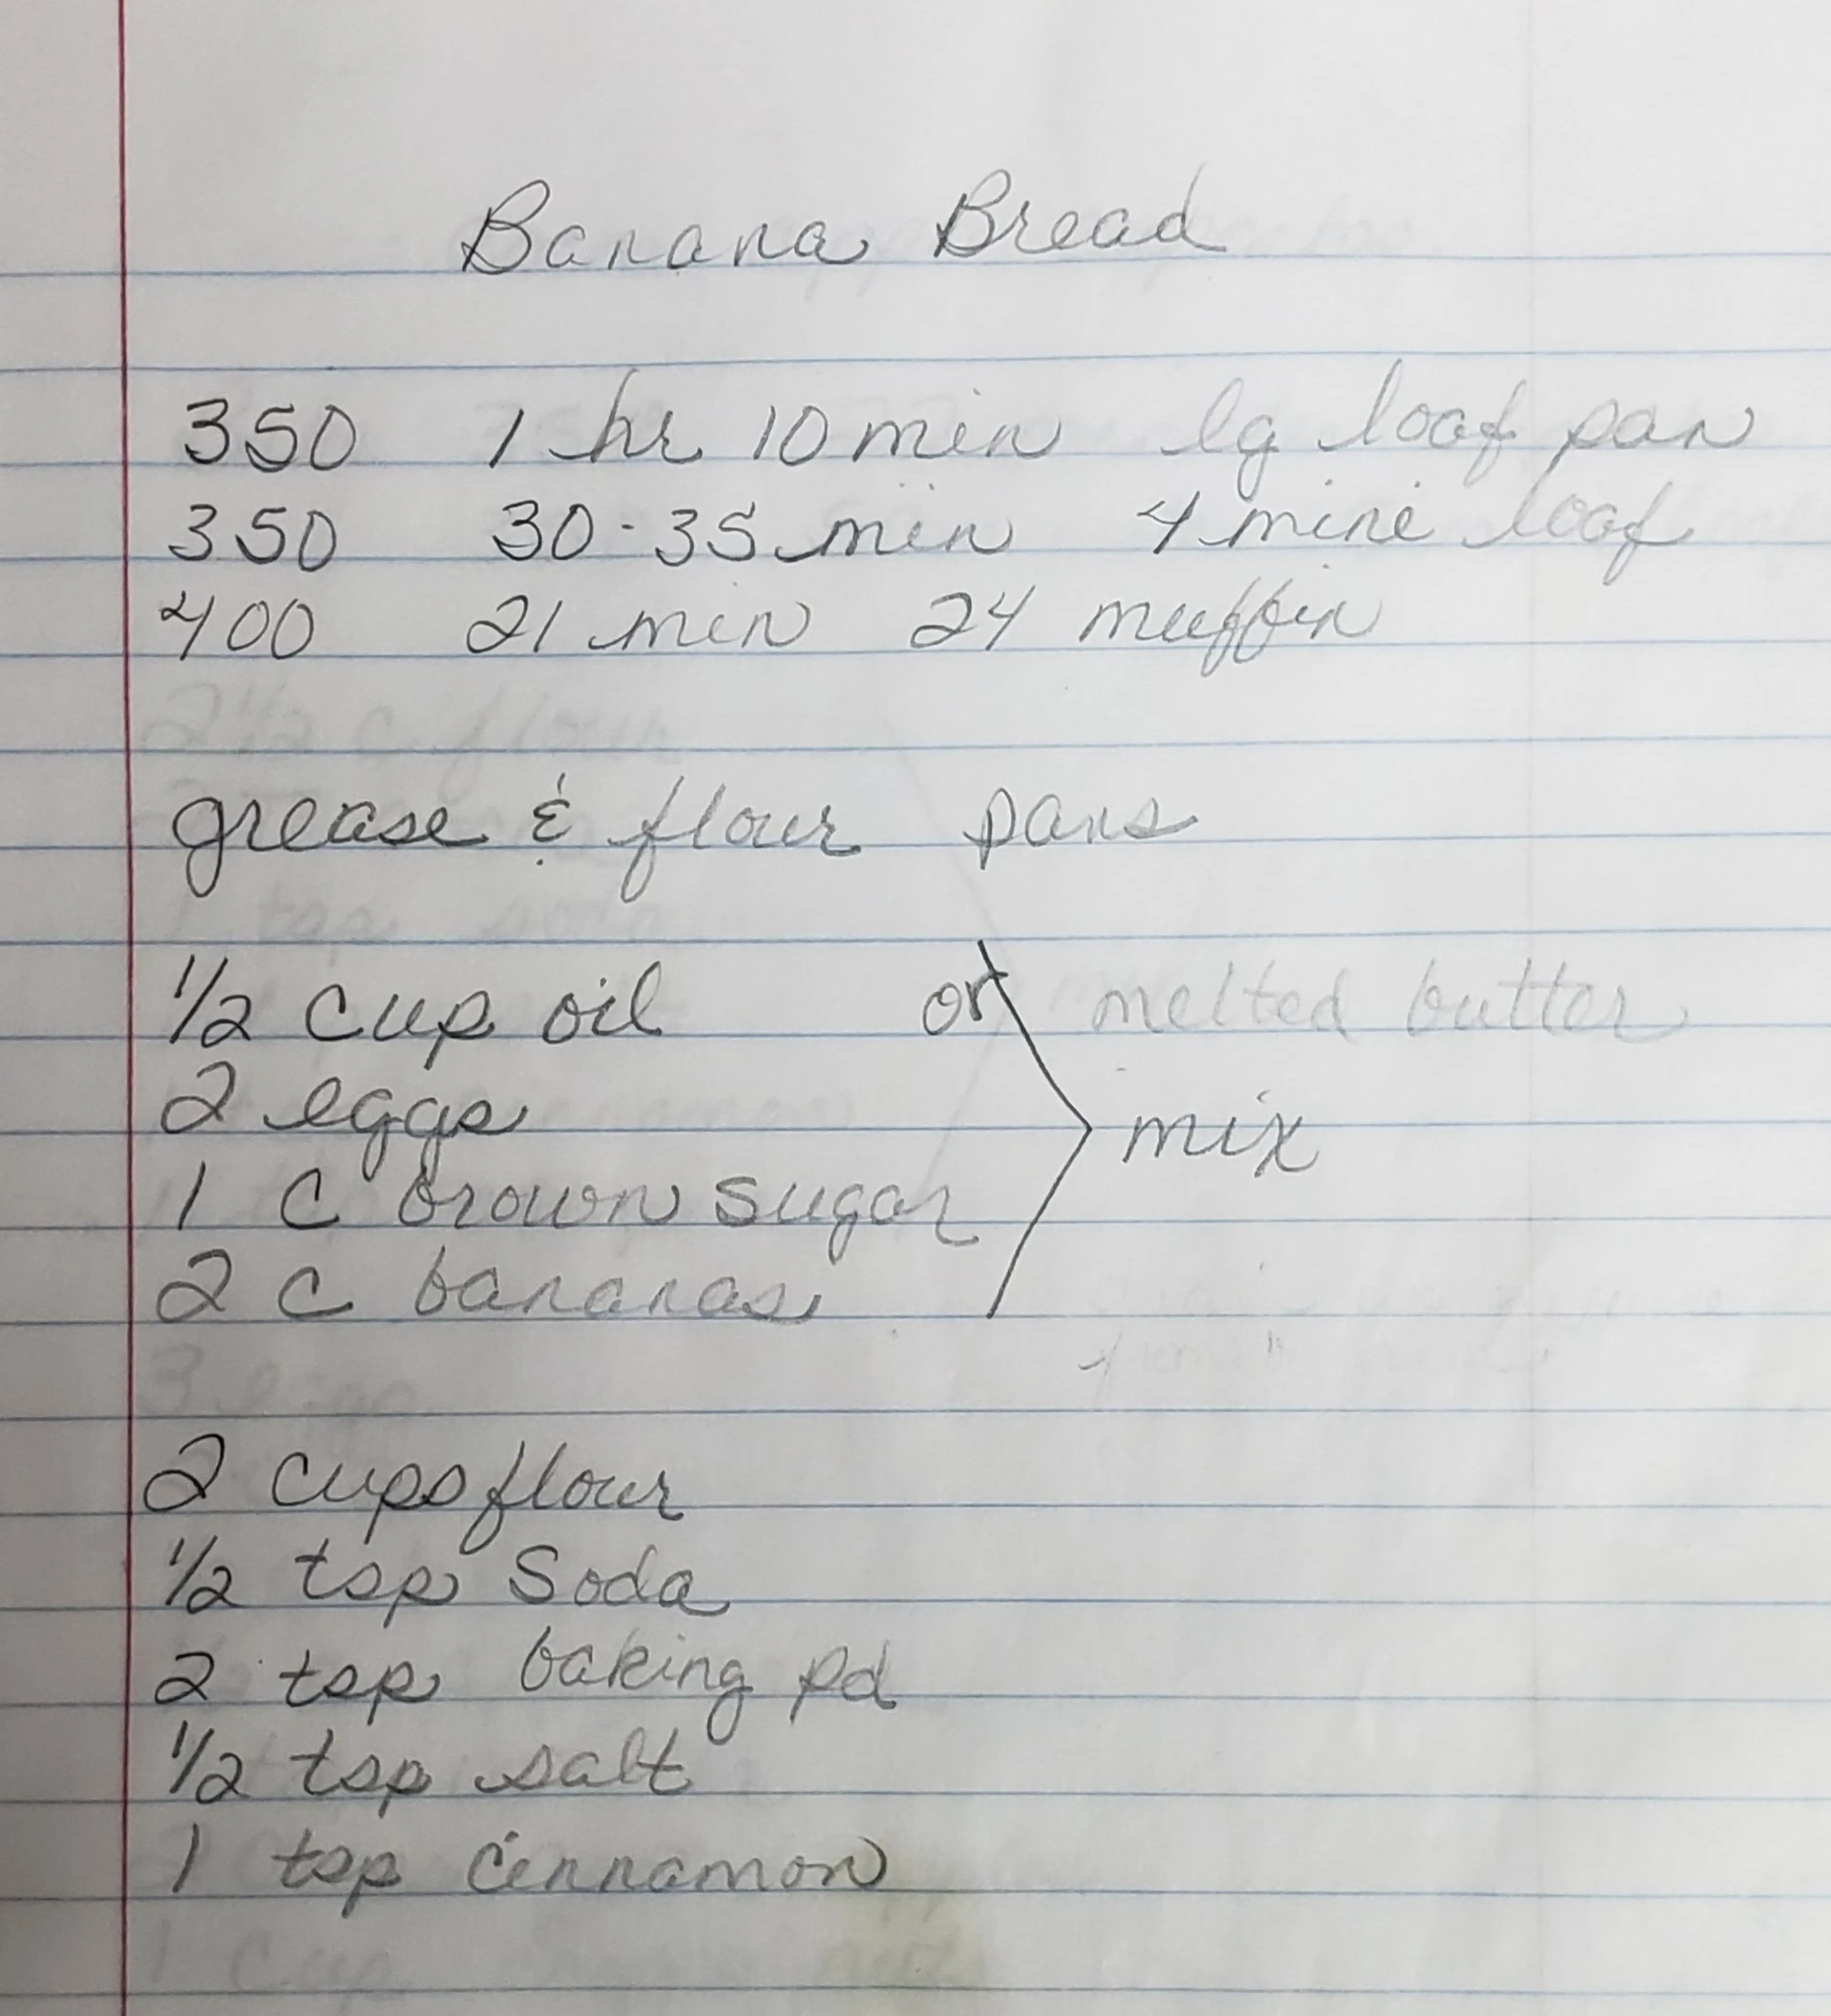 Banana Bread
350 1 hr 10 min lg loaf pan
350 30-35 min 4 mini loaf
400 21 min 24 muffin
2 1/2 c flour
grease & flour pans
1 tsp soda
1/2 cup oil or melted butter
2 eggs
mix
1 c brown sugar
2 c bananas
3 eggs
2 cups flour
1/2 tsp Soda
2 tsp baking pd
1/2 tsp salt
1 tsp cinnamon
1 cup